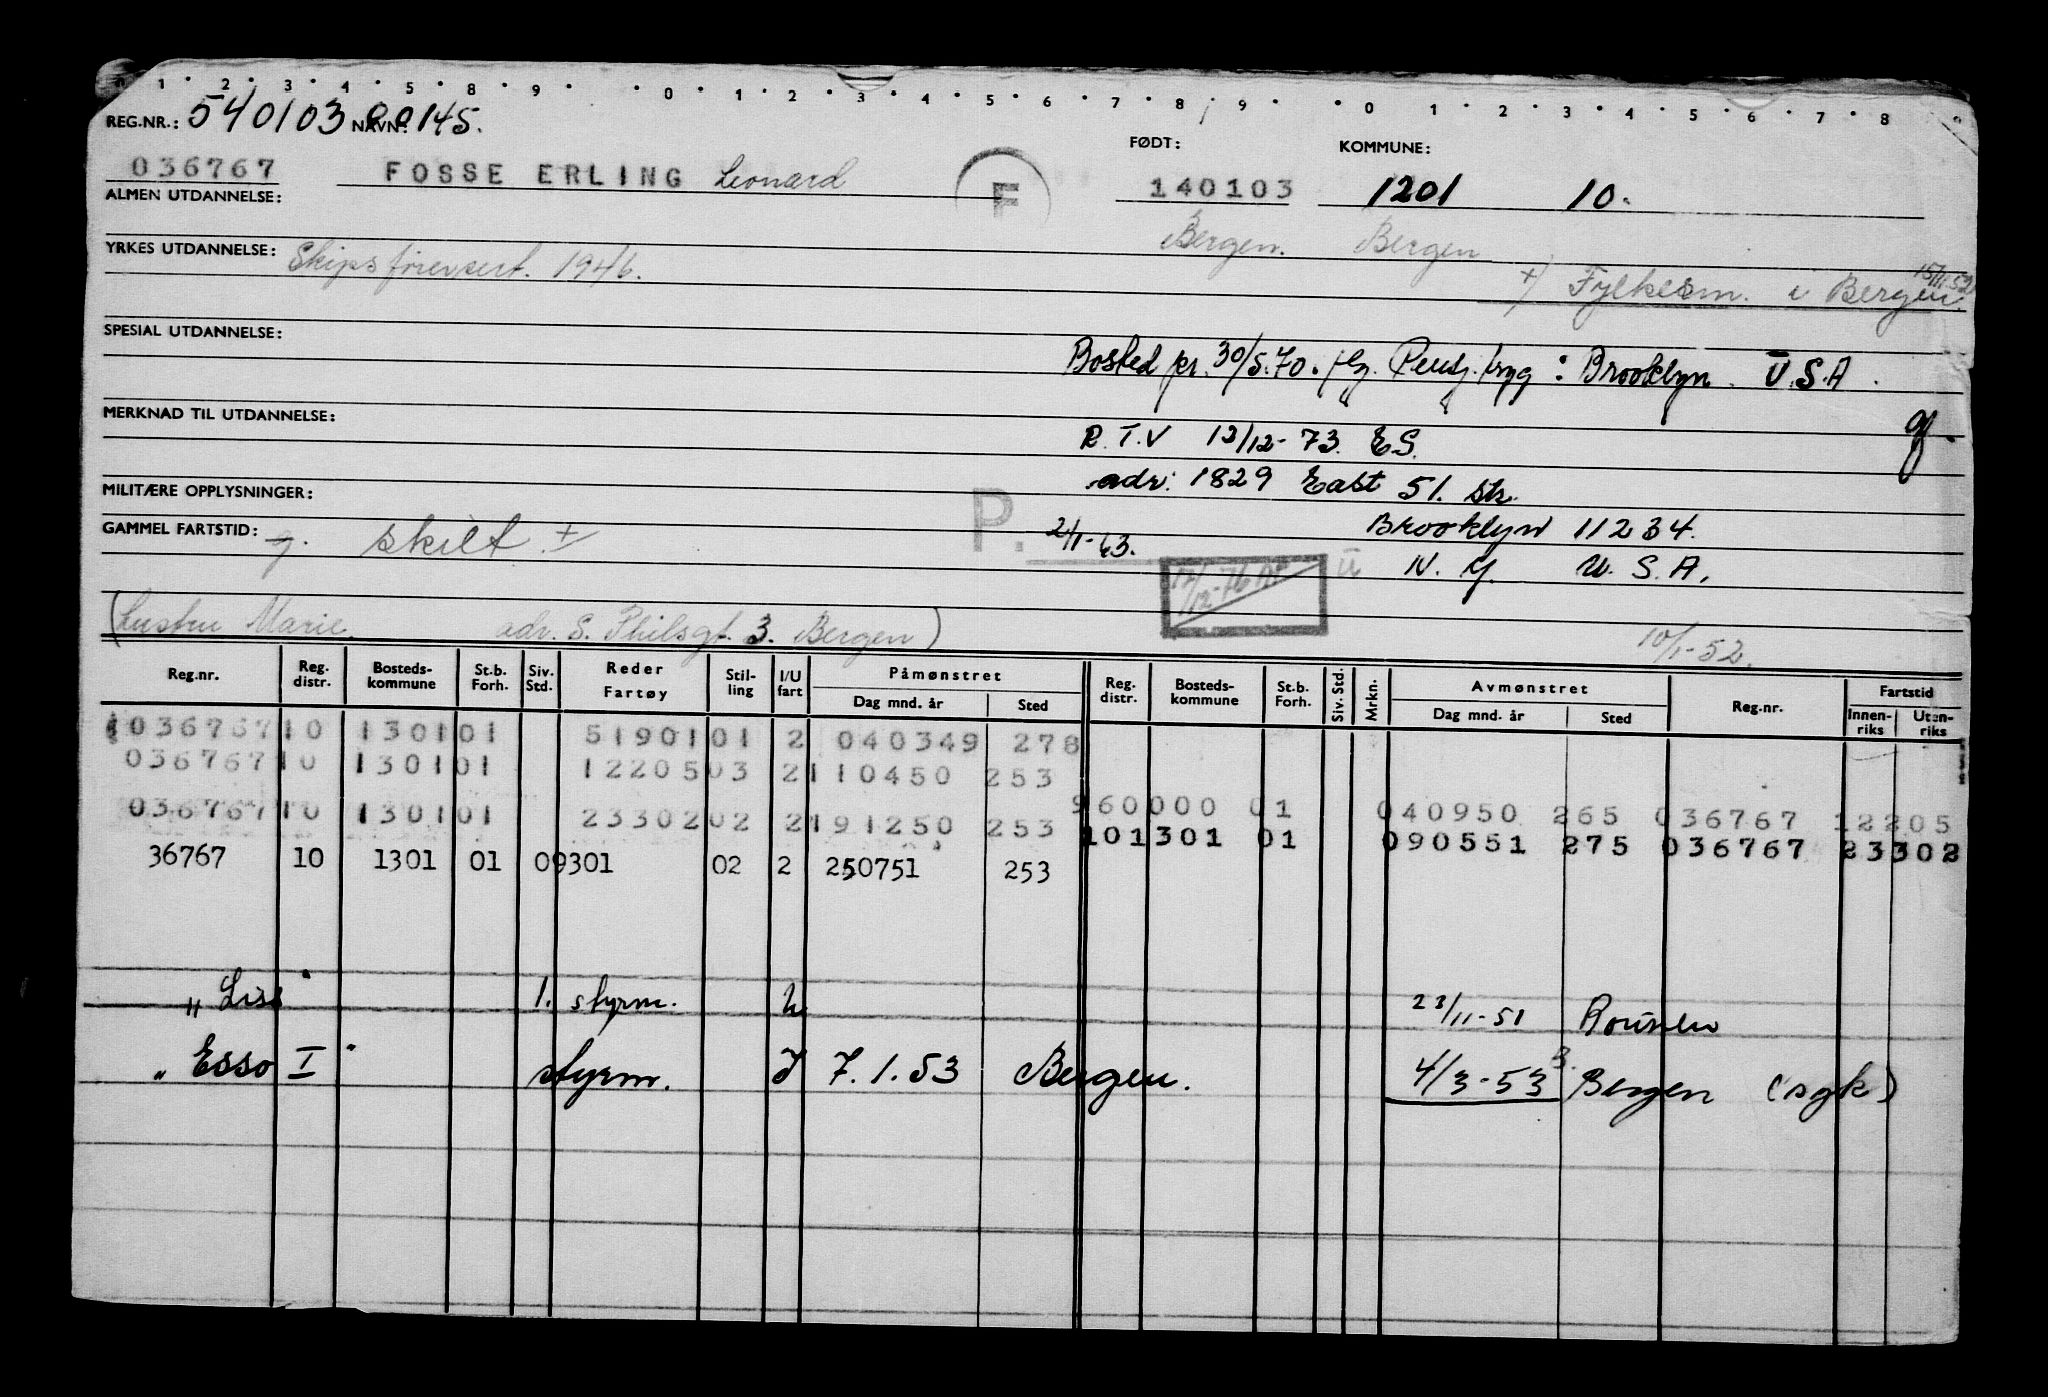 0 1 2 3 4 5 8 9 0 1 2 3 4 5 6 7 8 9 0 1 2 3 4 5 6 7 8
REG.NR.: 540103 00145. NAVN: FØDT: KOMMUNE:
036767 FOSSE ERLING Leonard F 140103 1201 10.
ALMEN UTDANNELSE: Bergen. Bergen
YRKES UTDANNELSE: Skipsførersert. 1946. +) Fylkesm. i Bergen 15/11-52
SPESIAL UTDANNELSE:
Bosted pr. 30/5.70. flg. Pensj.tryg : Brooklyn. U.S.A.
MERKNAD TIL UTDANNELSE:
R.T.V 12/12-73. E.S.
MILITÆRE OPPLYSNINGER: adr: 1829 East 51. str.
GAMMEL FARTSTID: g. skilt + P. 2/1-63. Brooklyn 11234.
17/12-76 U N.Y. U.S.A.
(Hustru Marie adr. S. Philsgt. 3. Bergen) 10/1-52.
Reg.nr. Reg. distr. Bosteds-kommune St.b. Forh. Siv. Std. Reder Fartøy Stil-ling I/U fart Påmønstret Dag mnd. år Sted Reg. distr. Bosteds-kommune St.b. Forh. Siv. Std. Mrkn. Avmønstret Dag mnd. år Sted Reg.nr. Fartstid Innen-riks Uten-riks
036767 10 1301 01 51901 01 2 040349 278
036767 10 1301 01 12205 03 2 110450 253
960000 01 040950 265 036767 12205
036767 10 1301 01 23302 02 2 191250 253
101301 01 090551 275 036767 23302
36767 10 1301 01 09301 02 2 250751 253
"Lise" 1. styrm. U 23/11-51 Rouen
"Esso I" styrm. I 7.1.53 Bergen. 4/3-53 Bergen (sgk)